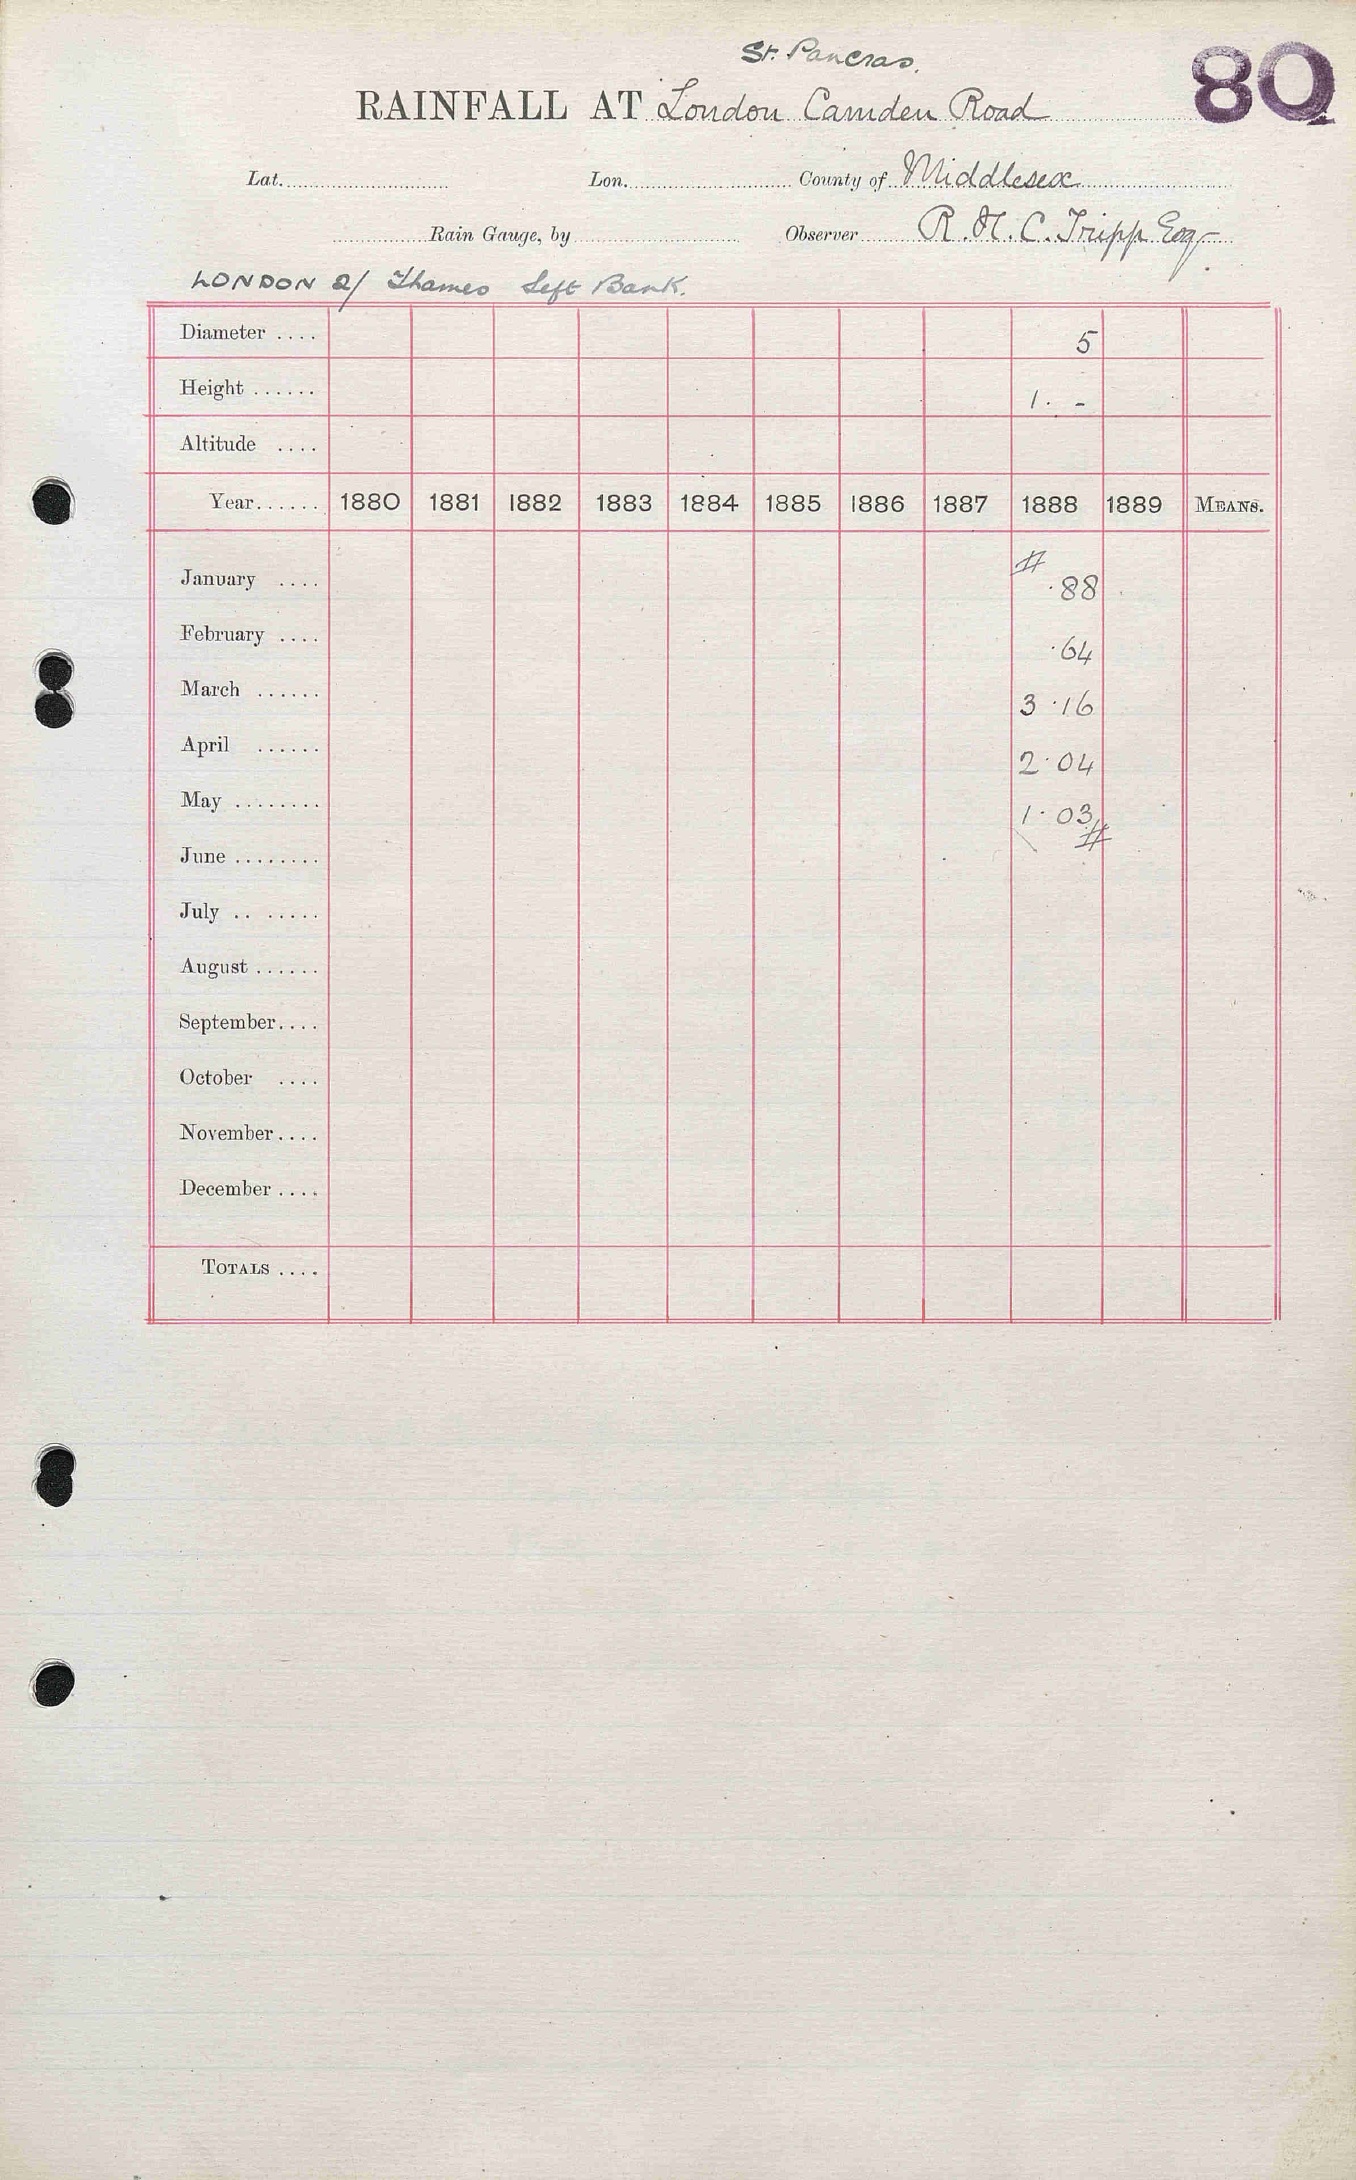 St. Pancras.
80
RAINFALL AT London Camden Road
Lat. Lon. County of Middlesex
Rain Gauge, by Observer R. H. C. Tripp Esq
LONDON 2/ Thames Left Bank.
Diameter .... 5
Height ...... 1. -
Altitude ....
Year...... 1880 1881 1882 1883 1884 1885 1886 1887 1888 1889 MEANS.
#
January .... ·88
February .... ·64
March ...... 3·16
April ...... 2·04
May ........ 1·03
#
June ........
July .. .....
August ......
September....
October ....
November....
December ....
TOTALS ....